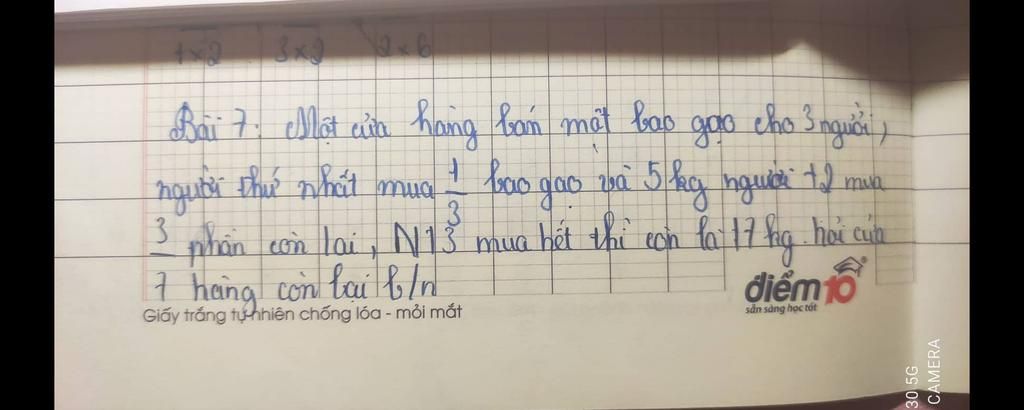 1x2 3x2 2x6
Bài 7: Một cửa hàng bán một bao gạo cho 3 người,
người thứ nhất mua 1/3 bao gạo và 5 kg người t2 mua
3/7 phần còn lại, N13 mua hết thì còn lại 17 kg. hỏi cửa
hàng còn lại b/n
điểm10
sẵn sàng học tốt
Giấy trắng tự nhiên chống lóa - mỏi mắt
30 5G
CAMERA